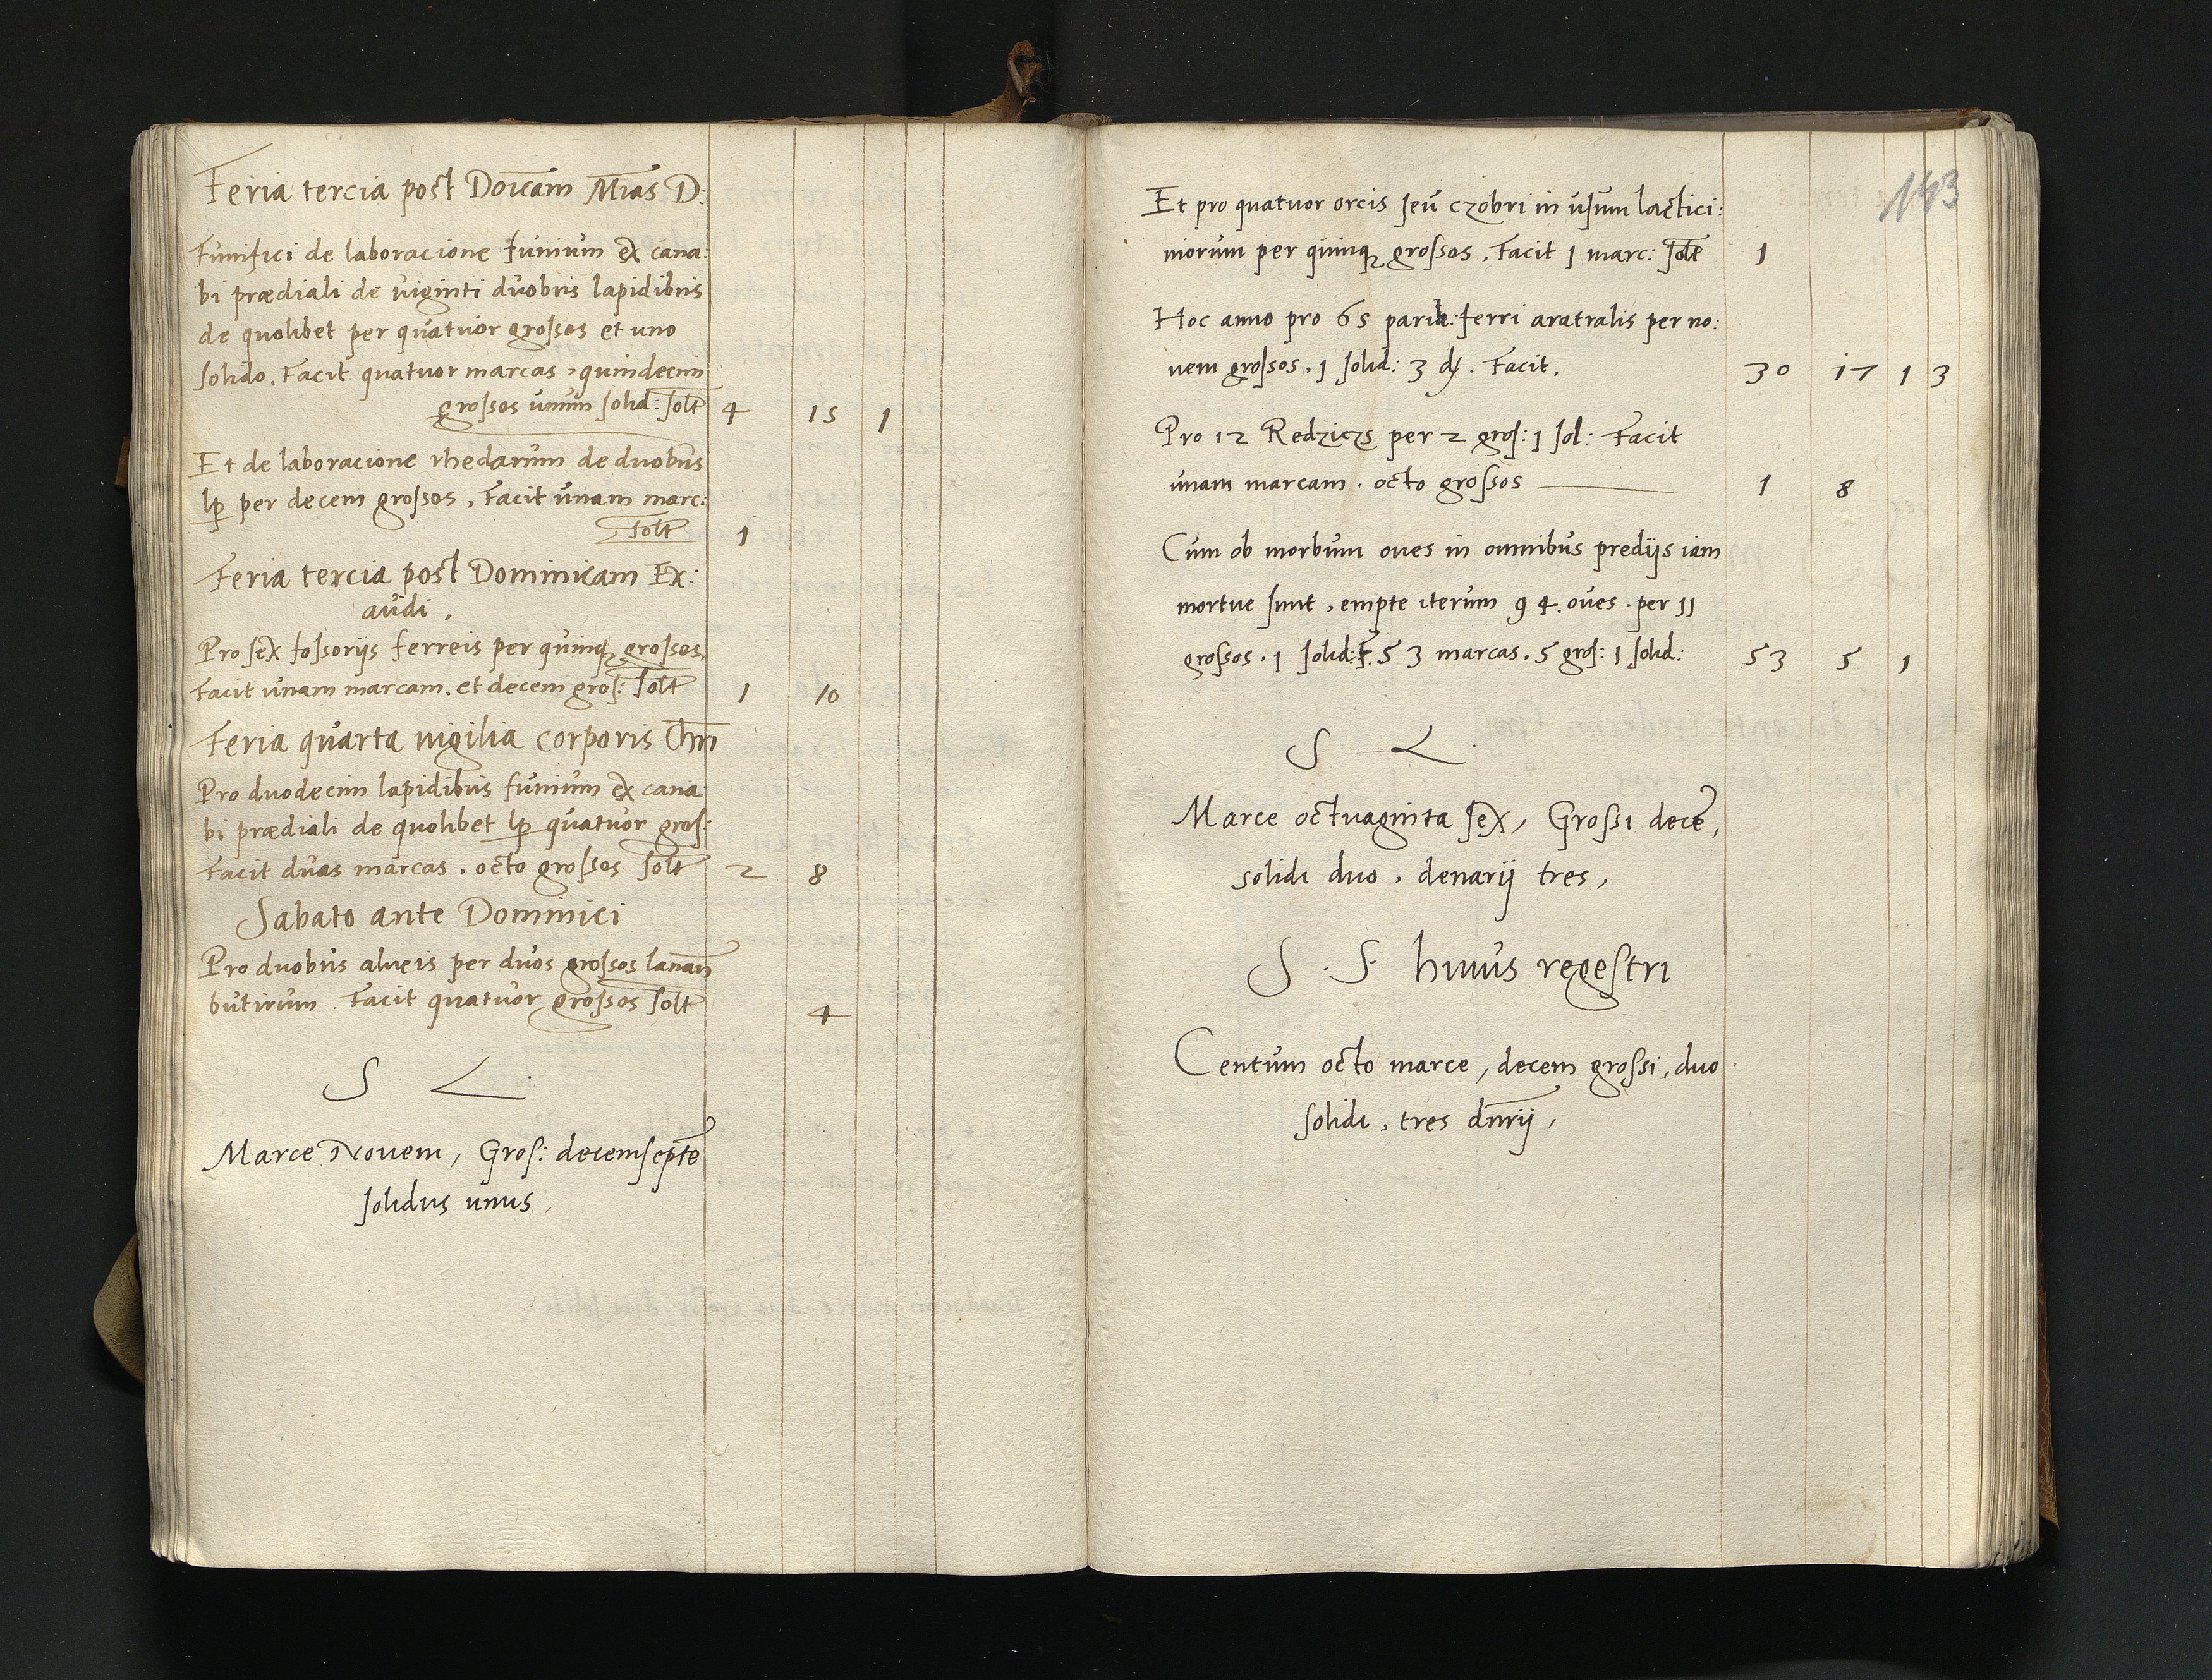 Feria tercia post Doīcam Mīas D:
Funifici de laboracione funium ex cana:
bi prædiali de viginti duobus lapidibus
de quolibet per quatuor grossos et uno
solido. Facit quatuor marcas, quindecim
grossos unum solid: solt 4 15 1
Et de laboracione rhedarum de duobus
lp per decem grossos, Facit unam marc:
solt 1
Feria tercia post Dominicam Ex:
audi.
Pro sex fossorijs ferreis per quinqꝫ grossos,
Facit unam marcam. et decem gros: solt 1 10
Feria quarta vigilia corporis Chrī
Pro duodecim lapidibus funium ex cana
bi prædiali de quolibet lp quatuor gros:
Facit duas marcas, octo grossos solt 2 8
Sabato ante Dominici
Pro duobus alveis per duos grossos
butirum. Facit quatuor grossos solt 4
S L
Marce Novem, Gros: decemsepte
solidus unus,
143
Et pro quatuor orcis seu czobri in usum lactici:
niorum per quinqꝫ grossos, Facit 1 marc: solt 1
Hoc anno pro 65 parib: ferri aratralis per no:
uem grossos, 1 solid: 3 d. Facit. 30 17 1 3
Pro 12 Redziczs per 2 gros: 1 sol: Facit
unam marcam. octo grossos 1 8
Cum ob morbum oues in omnibus predijs iam
mortue sunt, empte iterum 94. oues. per 11
grossos. 1 solid: F. 53 marcas. 5 gros: 1 solid: 53 5 1
S L
Marce octuaginta sex, Grossi decē,
solidi duo, denarij tres,
S. S. huius regestri
Centum octo marce, decem grossi, duo
solidi, tres dnrij,